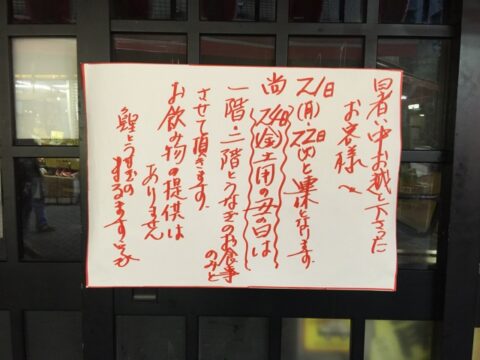 暑い中お越し下さった
お客様へ
21日(月)・22日(火)と連休となります
尚24日(金)土用の丑の日は
一階・二階とうなぎのお食事のみと
させて頂きます。
お飲み物の提供は
ありません
鯉とうなぎの
まるます家